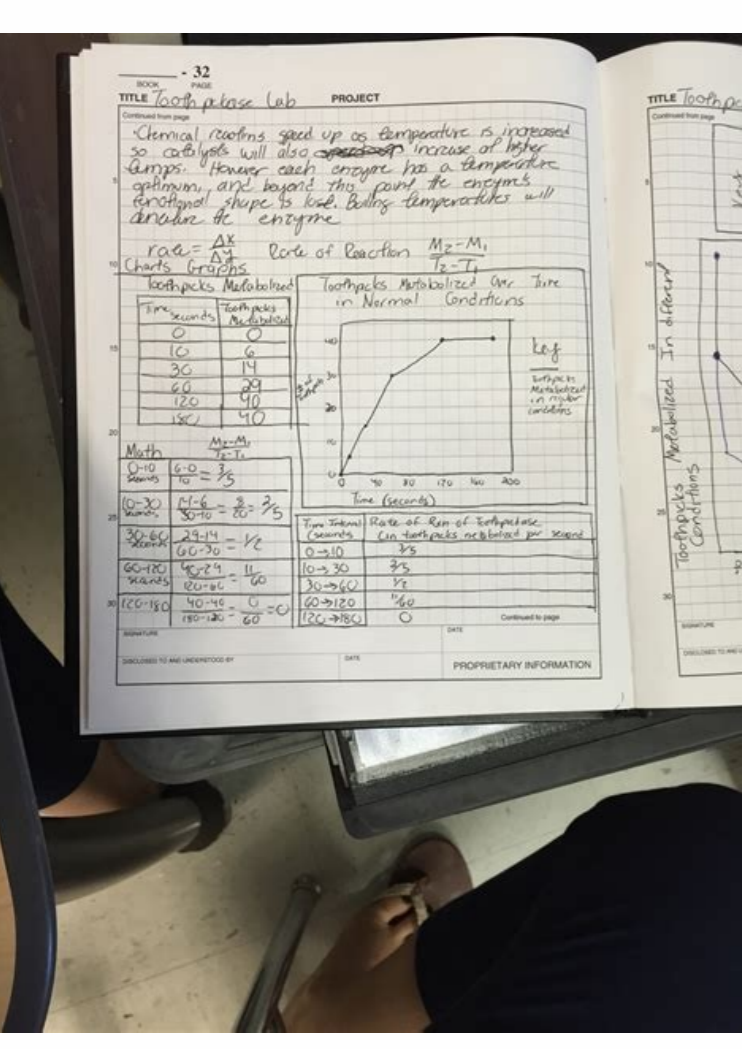 - 32
BOOK PAGE
TITLE Toothpickase Lab PROJECT
Continued from page
·Chemical reactions speed up as temperature is increased
so catalysts will also increase at higher
temps. However each enzyme has a temperature
optimum, and beyond this point the enzyme's
functional shape is lost. Boiling temperatures will
denature the enzyme
rate = ΔX/ΔY Rate of Reaction M2-M1/T2-T1
Charts Graphs
Toothpicks Metabolized
Time seconds Toothpicks Metabolized
0 0
10 6
30 14
60 29
120 40
180 40
Toothpicks Metabolized Over Time
in Normal Conditions
40
30
20
10
0 40 80 120 160 200
Time (seconds)
Key
Toothpicks
Metabolized
in regular
conditions
Math M2-M1/T2-T1
0-10 seconds 6-0/10 = 3/5
10-30 seconds 14-6/30-10 = 8/20 = 2/5
30-60 seconds 29-14/60-30 = 1/2
60-120 seconds 40-29/120-60 = 11/60
120-180 40-40/180-120 = 0/60 = 0
Time Interval (seconds Rate of Rxn of Toothpickase
(in toothpicks metabolized per second
0→10 3/5
10→30 2/5
30→60 1/2
60→120 11/60
120→180 0
Continued to page
SIGNATURE DATE
DISCLOSED TO AND UNDERSTOOD BY DATE PROPRIETARY INFORMATION
5
10
15
20
25
30
TITLE
Continued from page
Key
Toothpicks Metabolized In different
Conditions
5
10
15
20
25
30
SIGNATURE
DISCLOSED TO AND